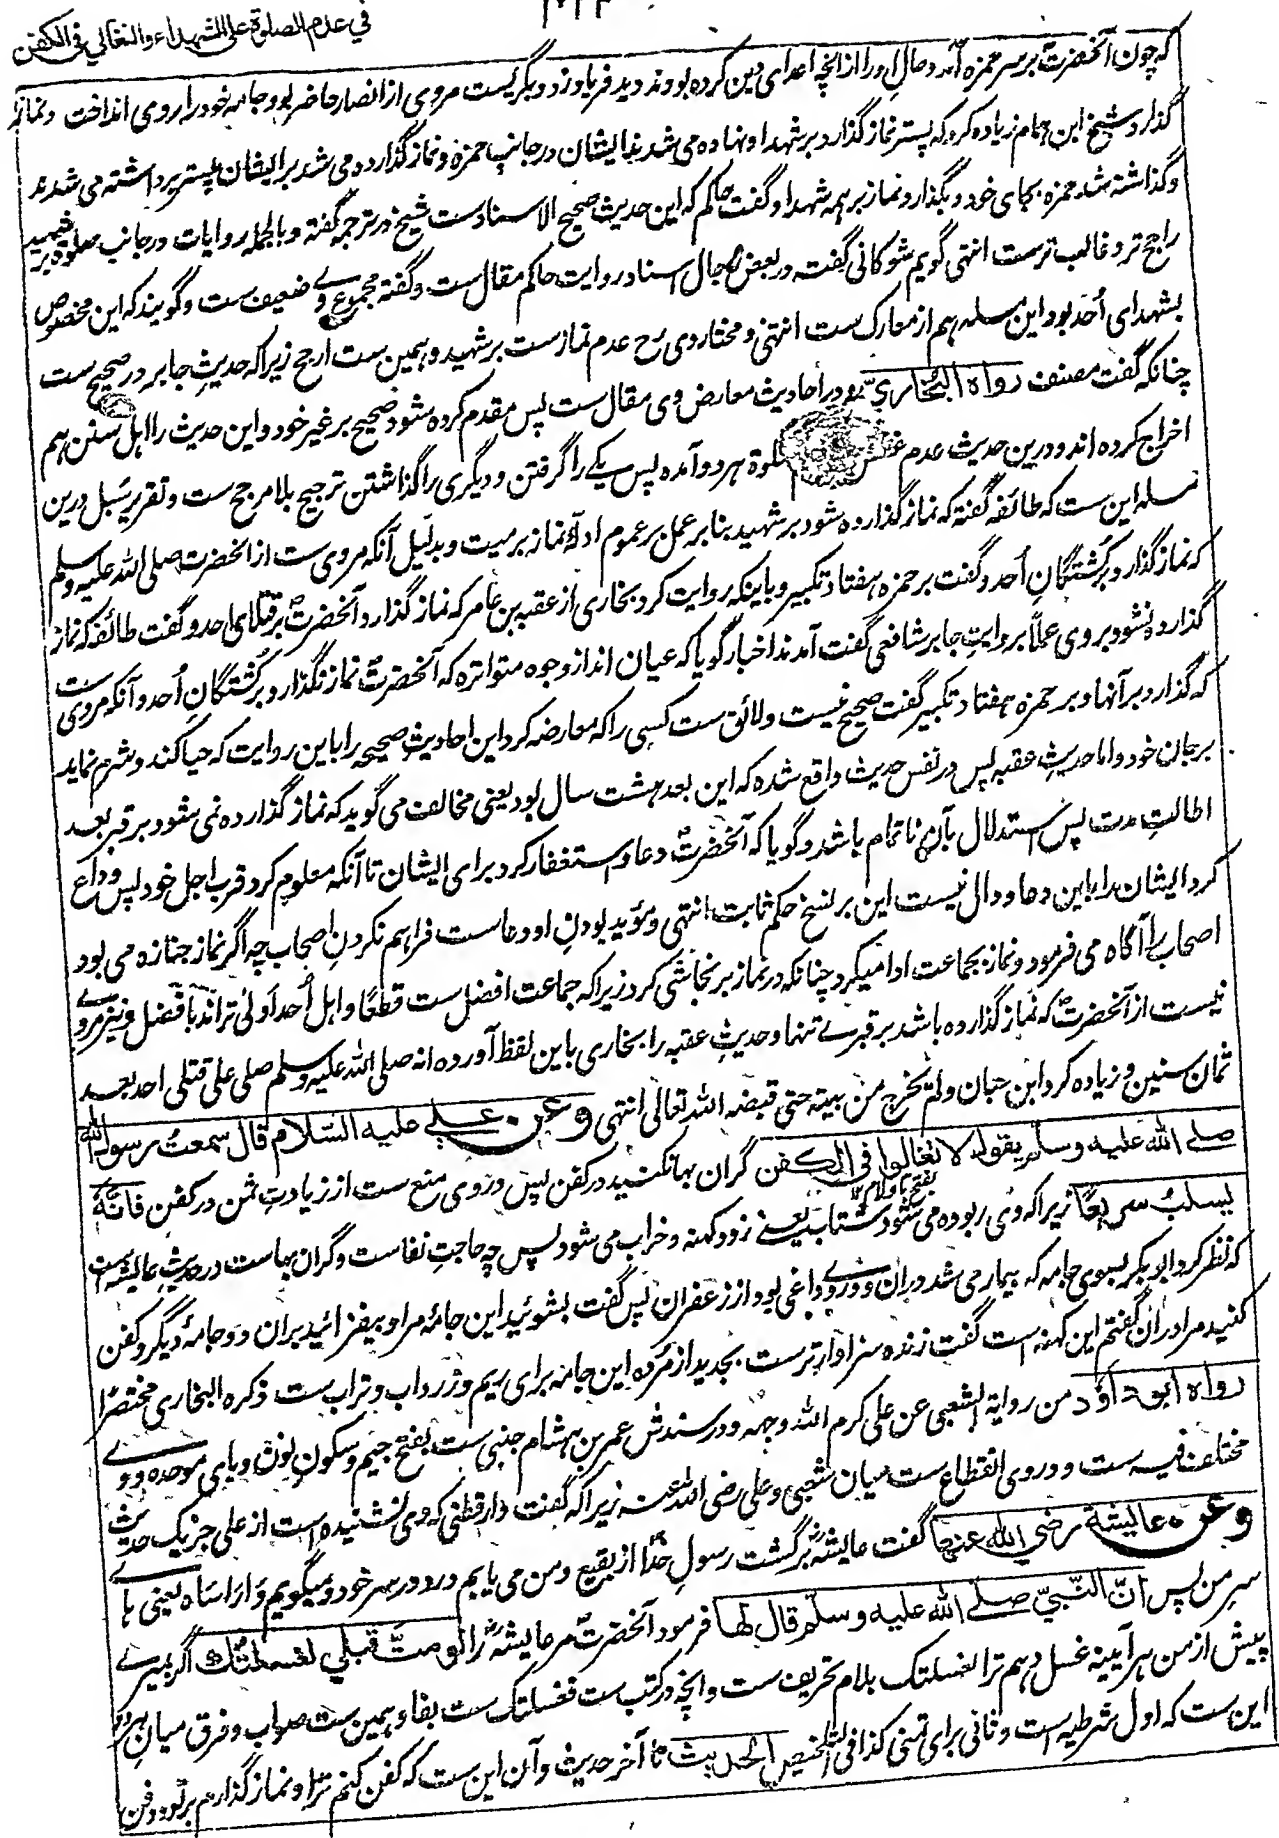 في عدم الصلوة على الشهداء والتغالي في الكفن
که چون آنحضرت بر سر حمزه آمد و حال او را از آنچه اعدای دین کرده بودند دید فریاد زد و بگریست مردی از انصار حاضر بود جامه خود را بر وی انداخت و نماز
گذارد شیخ ابن همام زیاده کرد که پستر نماز گذارد بر شهدا و نهاده می شدند ایشان در جانب حمزه و نماز گذارده می شد بر ایشان پستر برداشته می شدند
و گذاشته شد حمزه بجای خود و بگذارد نماز بر همه شهدا و گفت حاکم که این حدیث صحیح الاسنادست شیخ در ترجمه گفته و بالجمله روایات در جانب صلوة بر شهید
راجح تر و غالب ترست انتهی گویم شوکانی گفته در بعض رجال اسناد روایت حاکم مقال ست و گفته مجموع وی ضعیف ست و گویند که این مخصوص
بشهدای اُحد بود و این مسله هم از معارک ست انتهی و مختار وی رح عدم نمازست بر شهید و همین ست ارجح زیرا که حدیث جابر در صحیح ست
چنانکه گفت مصنف رواه البخاري و در احادیث معارض وی مقال ست پس مقدم کرده شود صحیح بر غیر خود و این حدیث را اهل سنن هم
اخراج کرده اند و درین حدیث عدم صلوة هر دو آمده پس یکے را گرفتن و دیگری را گذاشتن ترجیح بلا مرجح ست و تقریر سُبل درین
مسله این ست که طائفه گفته که نماز گذارده شود بر شهید بنا بر عمل بر عموم ادلهٔ نماز بر میت و بدلیل آنکه مروی ست از آنحضرت صلی الله علیه وسلم
که نماز گذارد بر کُشتگانِ اُحد و گفت بر حمزه هفتاد تکبیر و باینکه روایت کرد بخاری از عقبه بن عامر که نماز گذارد آنحضرت بر قتلای احد و گفت طائفه که نماز
گذارده نشود بر وی عملاً بروایتِ جابر شافعی گفت آمدند اخبار گویا که عیان اند از وجوه متواتره که آنحضرت نماز نگذارد بر کُشتگانِ اُحد و آنکه مروی ست
که گذارد بر آنها و بر حمزه هفتاد تکبیر گفت صحیح نیست و لائق ست کسی را که معارضه کرد این احادیثِ صحیحه را باین روایت که حیا کند و شرم نماید
بر جان خود و اما حدیثِ عقبه پس در نفس حدیث واقع شده که این بعد هشت سال بود یعنی مخالف می گوید که نماز گذارده نمی شود بر قبر بعد
اطالتِ مدت پس استدلال بآن ناتمام باشد و گویا که آنحضرت دعا و استغفار کرد برای ایشان تا آنکه معلوم کرد قرب اجل خود پس وداع
کرد ایشان را باین دعا و دال نیست این بر نسخ حکم ثابت انتهی و مؤید بودنِ او دعاست فراهم نکردنِ اصحاب چه اگر نماز جنازه می بود
اصحاب را آگاه می فرمود و نماز بجماعت ادا میکرد چنانکه در نماز بر نجاشی کرد زیرا که جماعت افضل ست قطعًا و اهل اُحد اولی تر اند بافضل و نیز مروی
نیست از آنحضرت که نماز گذارده باشد بر قبرے تنها و حدیثِ عقبه را بخاری باین لفظ آورده انه صلی الله علیه وسلم صلی علی قتلی احد بعد
ثمان سنین و زیاده کرد ابن حبان ولم یخرج من بیته حتی قبضه الله تعالی انتهی وعن علي علیه السلام قال سمعت رسول الله
صلے الله علیه وسلم یقول لا تغالوا فی الکفن گران بها نکنید در کفن پس در وی منع ست از زیادتِ ثمن در کفن فانّه
یسلبُ سریعًا زیرا که وی ربوده می شود شتاب یعنے زود کهنه و خراب می شود پس چه حاجتِ نفاست و گران بهاست در حدیثِ عائشه است
که نظر کرد ابوبکر بسوی جامه که بیمار می شد دران و در وے داغی بود از زعفران پس گفت بشوئید این جامه مرا و بیفزائید بران دو جامهٔ دیگر و کفن
کنید مرا دران گفتم این کهنه است گفت زنده سزاوارترست بجدید از مُرده این جامه برای ریم و زرداب و تراب ست ذکره البخاری مختصرًا
رواه ابو داؤد من روایة الشعبی عن علی کرم الله وجهه و در سندش عمر بن هشام جنبی ست بفتح جیم و سکونِ نون و بای موحده و وے
مختلف فیه ست و در وی انقطاع ست میان شعبی و علی رضی الله عنه زیرا که گفت دارقطنی که وی نشنیده است از علی جز یک حدیث
وعن عائشة رضي الله عنها گفت عائشه برگشت رسولِ خدا از بقیع و من می یابم درد در سر خود و میگویم وَارَاسَاه یعنی هاے
سر من پس انّ النّبيّ صلے الله علیه وسلم قال لها فرمود آنحضرت مر عائشه را لو متّ قبلي لغسلتُك اگر بمیرے
پیش از من هرآیینه غسل دهم ترا لغسلتک بلام تحریف ست و آنچه در کتب ست فغسلتک ست بفا و همین ست صواب و فرق میان هر دو
این ست که اول شرطیه است و ثانی برای تمنی کذا فی التلخیص الحدیث تا آخر حدیث و آن این ست که کفن کنم ترا و نماز گذارم بر تو و دفن